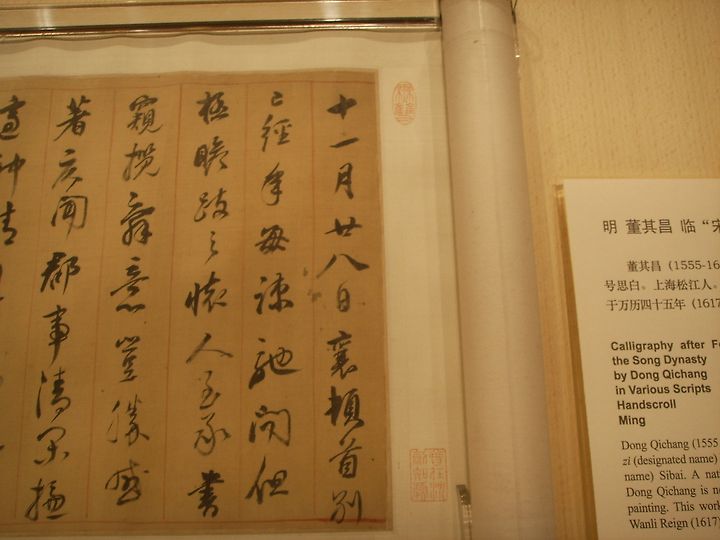 十一月廿八日襄頓首別
已經年每疎馳問但
極瞻跂之懷人至承書
窺攬辭意豈勝感
著慶聞郡事清閑攝
明 董其昌 临 “宋
董其昌（1555-16
号思白。上海松江人。
于万历四十五年（1617
Calligraphy after F
the Song Dynasty
by Dong Qichang
in Various Scripts
Handscroll
Ming
Dong Qichang (1555
zi (designated name)
name) Sibai. A nat
Dong Qichang is n
painting. This work
Wanli Reign (1617)